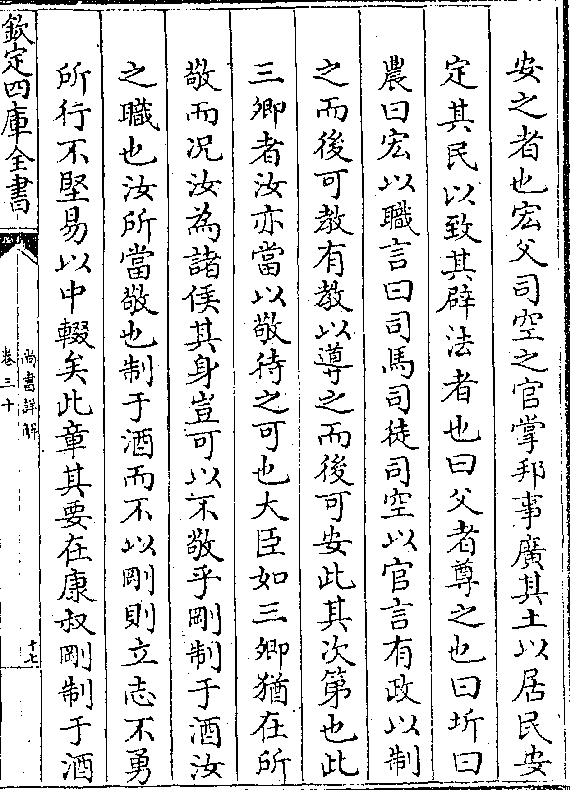 安之者也宏父司空之官掌邦事廣其土以居民安
定其民以致其辟法者也曰父者尊之也曰圻曰
農曰宏以職言曰司馬司徒司空以官言有政以制
之而後可教有教以導之而後可安此其次第也此
三卿者汝亦當以敬待之可也大臣如三卿猶在所
敬而况汝為諸侯其身豈可以不敬乎剛制于酒汝
之職也汝所當敬也制于酒而不以剛則立志不勇
所行不堅易以中輟矣此章其要在康叔剛制于酒
欽定四庫全書
尚書詳解
卷三十
十七